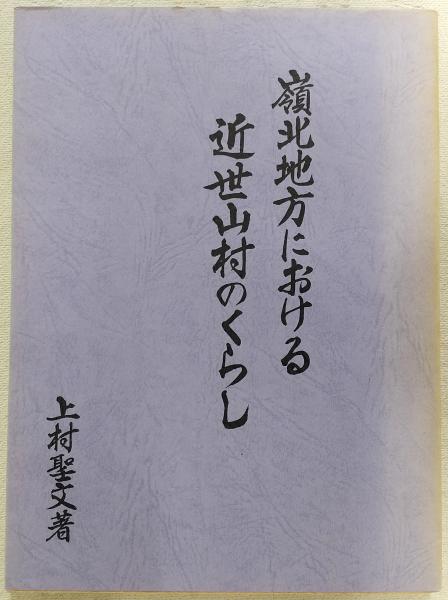 嶺北地方における
近世山村のくらし
上村聖文著